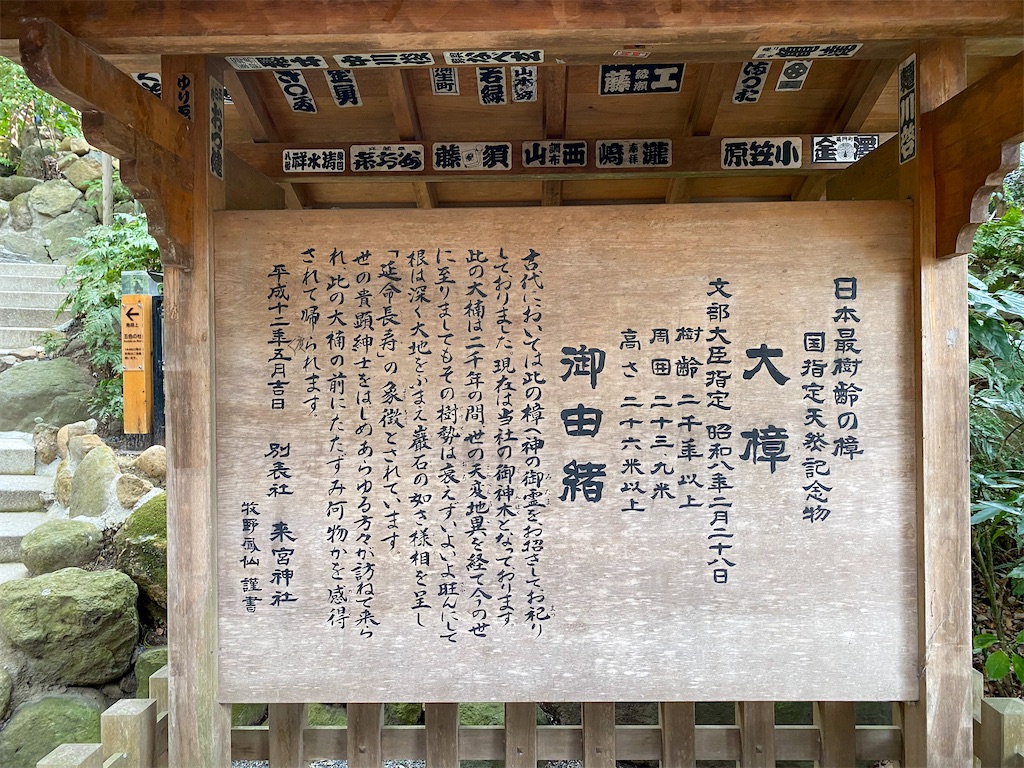 日本最樹齢の樟
国指定天然記念物
大樟
文部大臣指定 昭和八年二月二十八日
樹齢 二千年以上
周囲 二十三、九米
高さ 二十六米以上
御由緒
古代においては此の樟へ神の御霊をお招きしてお祀り
しておりました。現在は当社の御神木となっております
此の大楠は二千年の間世の天変地異を経て今の世
に至りましてもその樹勢は衰えずいよいよ旺んにして
根は深く大地をふまえ巌石の如き様相を呈し
「延命長寿」の象徴とされています。
世の貴顕紳士をはじめあらゆる方々が訪ねて来ら
れ、此の大楠の前にたたずみ何物かを感得
されて帰られます。
平成十二年五月吉日 別表社 来宮神社
牧野 謹書
小笠原
瀧嶋
西山
須藤
清水祥
工藤
ゆり